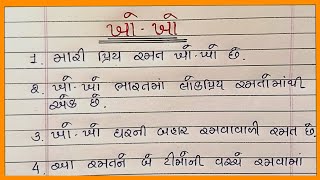 ખો - ખો
1. મારી પ્રિય રમત ખો-ખો છે.
2. ખો-ખો ભારતમાં લોકપ્રિય રમતોમાંથી
એક છે.
3. ખો-ખો ઘરની બહાર રમવાવાળી રમત છે.
4. આ રમતને બે ટીમોની વચ્ચે રમવામાં